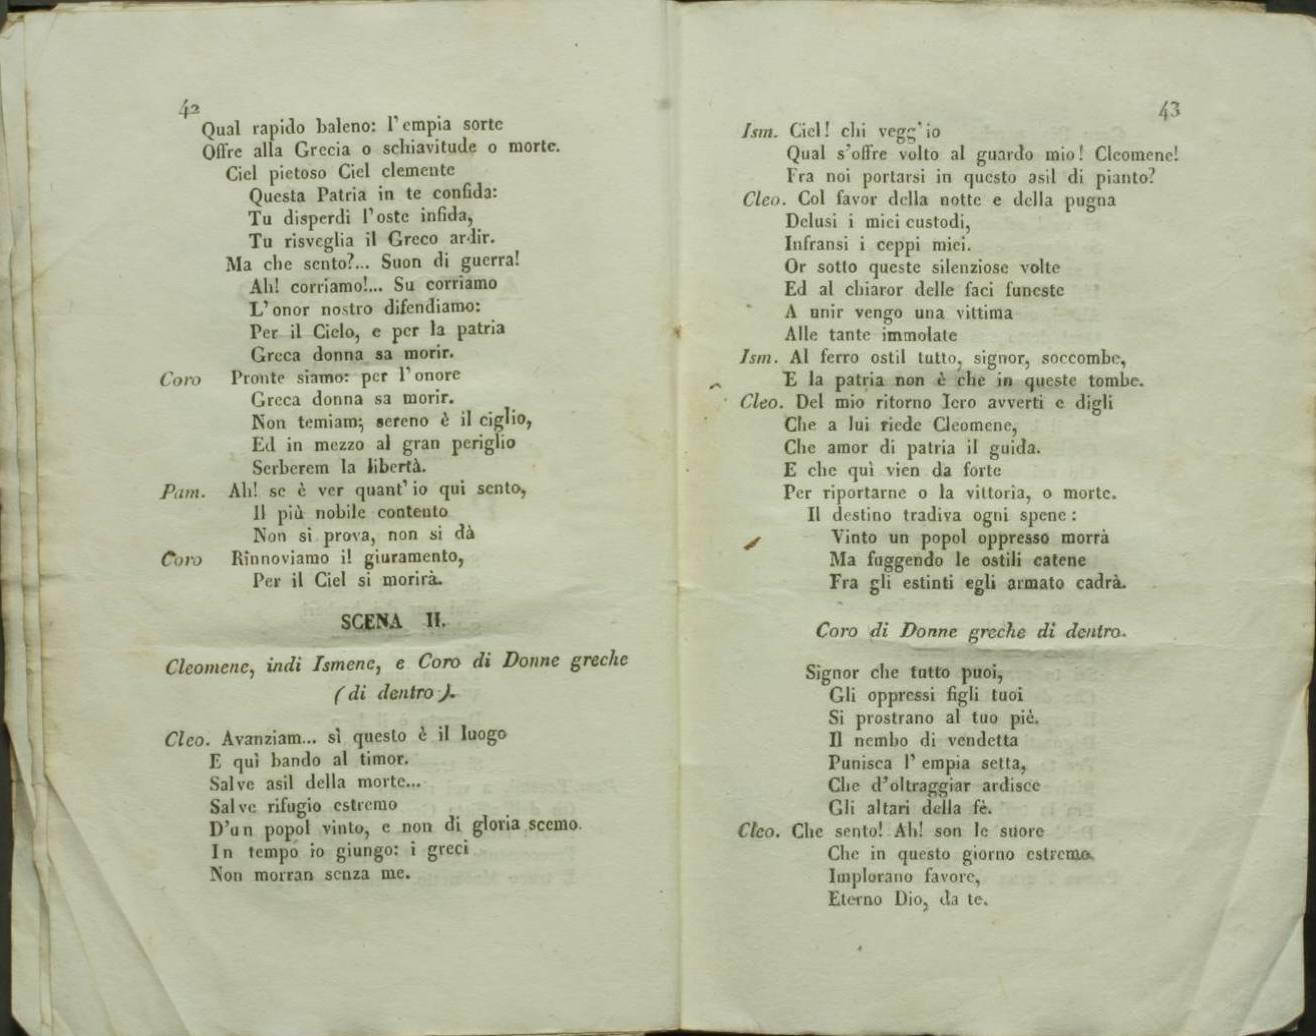 42
Qual rapido baleno: l'empia sorte
Offre alla Grecia o schiavitude o morte.
Ciel pietoso Ciel clemente
Questa Patria in te confida:
Tu disperdi l'oste infida,
Tu risveglia il Greco ardir.
Ma che sento?... Suon di guerra!
Ah! corriamo!... Su corriamo
L'onor nostro difendiamo:
Per il Cielo, e per la patria
Greca donna sa morir.
Coro Pronte siamo: per l'onore
Greca donna sa morir.
Non temiam; sereno è il ciglio,
Ed in mezzo al gran periglio
Serberem la libertà.
Pam. Ah! se è ver quant'io qui sento,
Il più nobile contento
Non si prova, non si dà
Coro Rinnoviamo il giuramento,
Per il Ciel si morirà.
SCENA II.
Cleomene, indi Ismene, e Coro di Donne greche
(di dentro).
Cleo. Avanziam... sì questo è il luogo
E quì bando al timor.
Salve asil della morte...
Salve rifugio estremo
D'un popol vinto, e non di gloria scemo.
In tempo io giungo: i greci
Non morran senza me.
43
Ism. Ciel! chi vegg'io
Qual s'offre volto al guardo mio! Cleomene!
Fra noi portarsi in questo asil di pianto?
Cleo. Col favor della notte e della pugna
Delusi i miei custodi,
Infransi i ceppi miei.
Or sotto queste silenziose volte
Ed al chiaror delle faci funeste
A unir vengo una vittima
Alle tante immolate
Ism. Al ferro ostil tutto, signor, soccombe,
E la patria non è che in queste tombe.
Cleo. Del mio ritorno Jero avverti e digli
Che a lui riede Cleomene,
Che amor di patria il guida.
E che quì vien da forte
Per riportarne o la vittoria, o morte.
Il destino tradiva ogni spene:
Vinto un popol oppresso morrà
Ma fuggendo le ostili catene
Fra gli estinti egli armato cadrà.
Coro di Donne greche di dentro.
Signor che tutto puoi,
Gli oppressi figli tuoi
Si prostrano al tuo piè.
Il nembo di vendetta
Punisca l'empia setta,
Che d'oltraggiar ardisce
Gli altari della fè.
Cleo. Che sento! Ah! son le suore
Che in questo giorno estremo
Implorano favore,
Eterno Dio, da te.